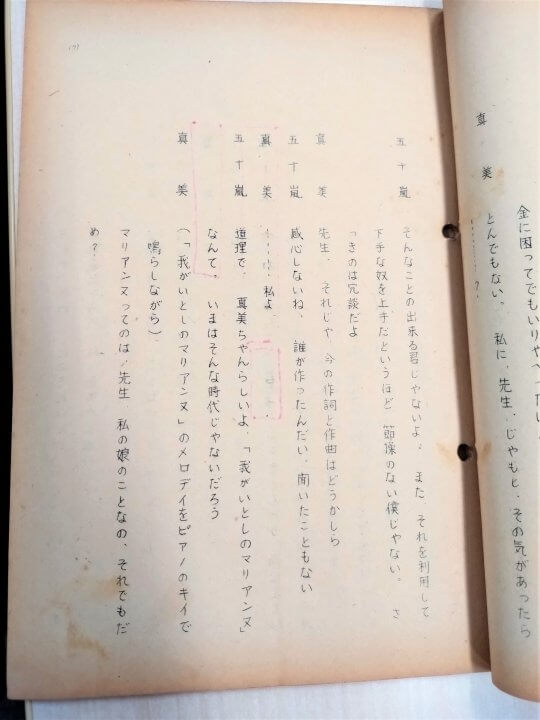 金に困ってでもいりゃべつだい
真美　とんでもない。私に、先生、じゃもと、その気があったら
………？
(7)
五十嵐　そんなことの出来る君じゃないよ。また、それを利用して
下手な奴を上手だというほど、節操のない僕じゃない。さ
っきのは冗談だよ
真美　先生、それじゃ、今の作詞と作曲はどうかしら
五十嵐　感心しないね、誰が作ったんだい、聞いたこともない
真美　………私よ、
五十嵐　道理で、真美ちゃんらしいよ、「我がいとしのマリアンヌ」
なんて。いまはそんな時代じゃないだろう
真美　（「我がいとしのマリアンヌ」のメロデイをピアノのキイで
鳴らしながら）
マリアンヌってのは、先生、私の娘のことなの、それでもだ
め？